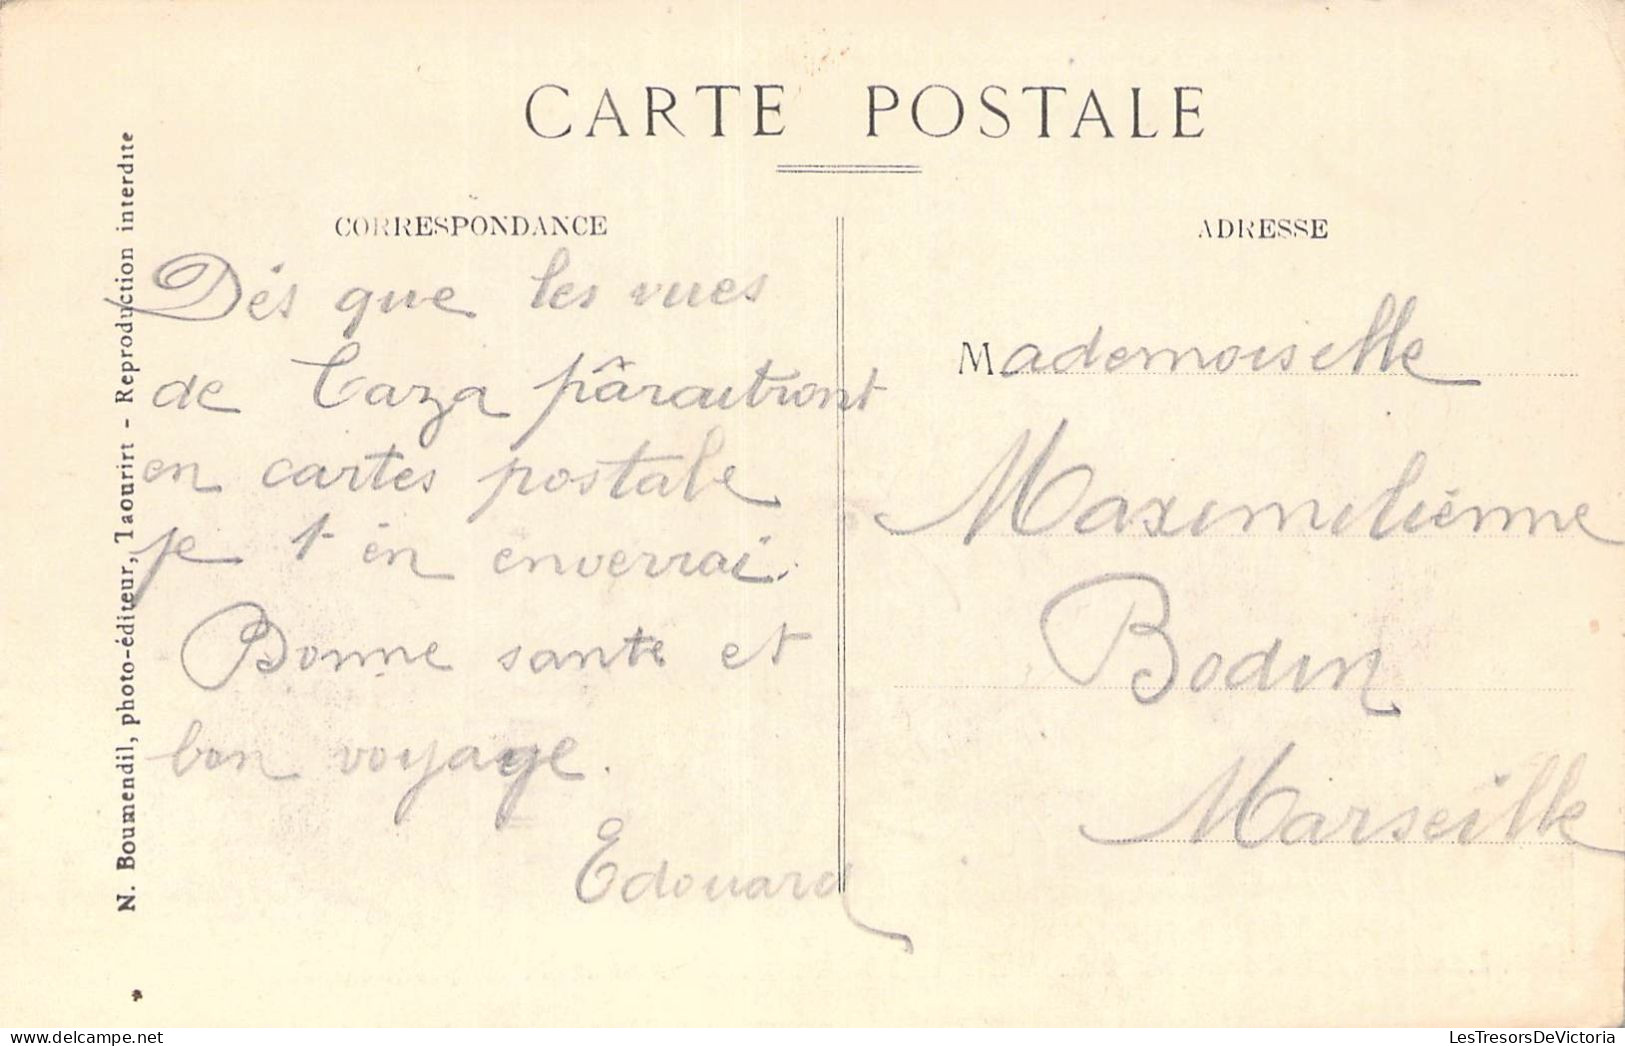 CARTE POSTALE
CORRESPONDANCE
Dés que les vues
de Taza pâraitront
en cartes postale
je t'en enverrai.
Bonne sante et
bon voyage.
Edouard
ADRESSE
Mademoiselle
Maximilienne
Bodin
Marseille
N. Boumendil, photo-éditeur, Taourirt - Reproduction interdite
LesTresorsDeVictoria